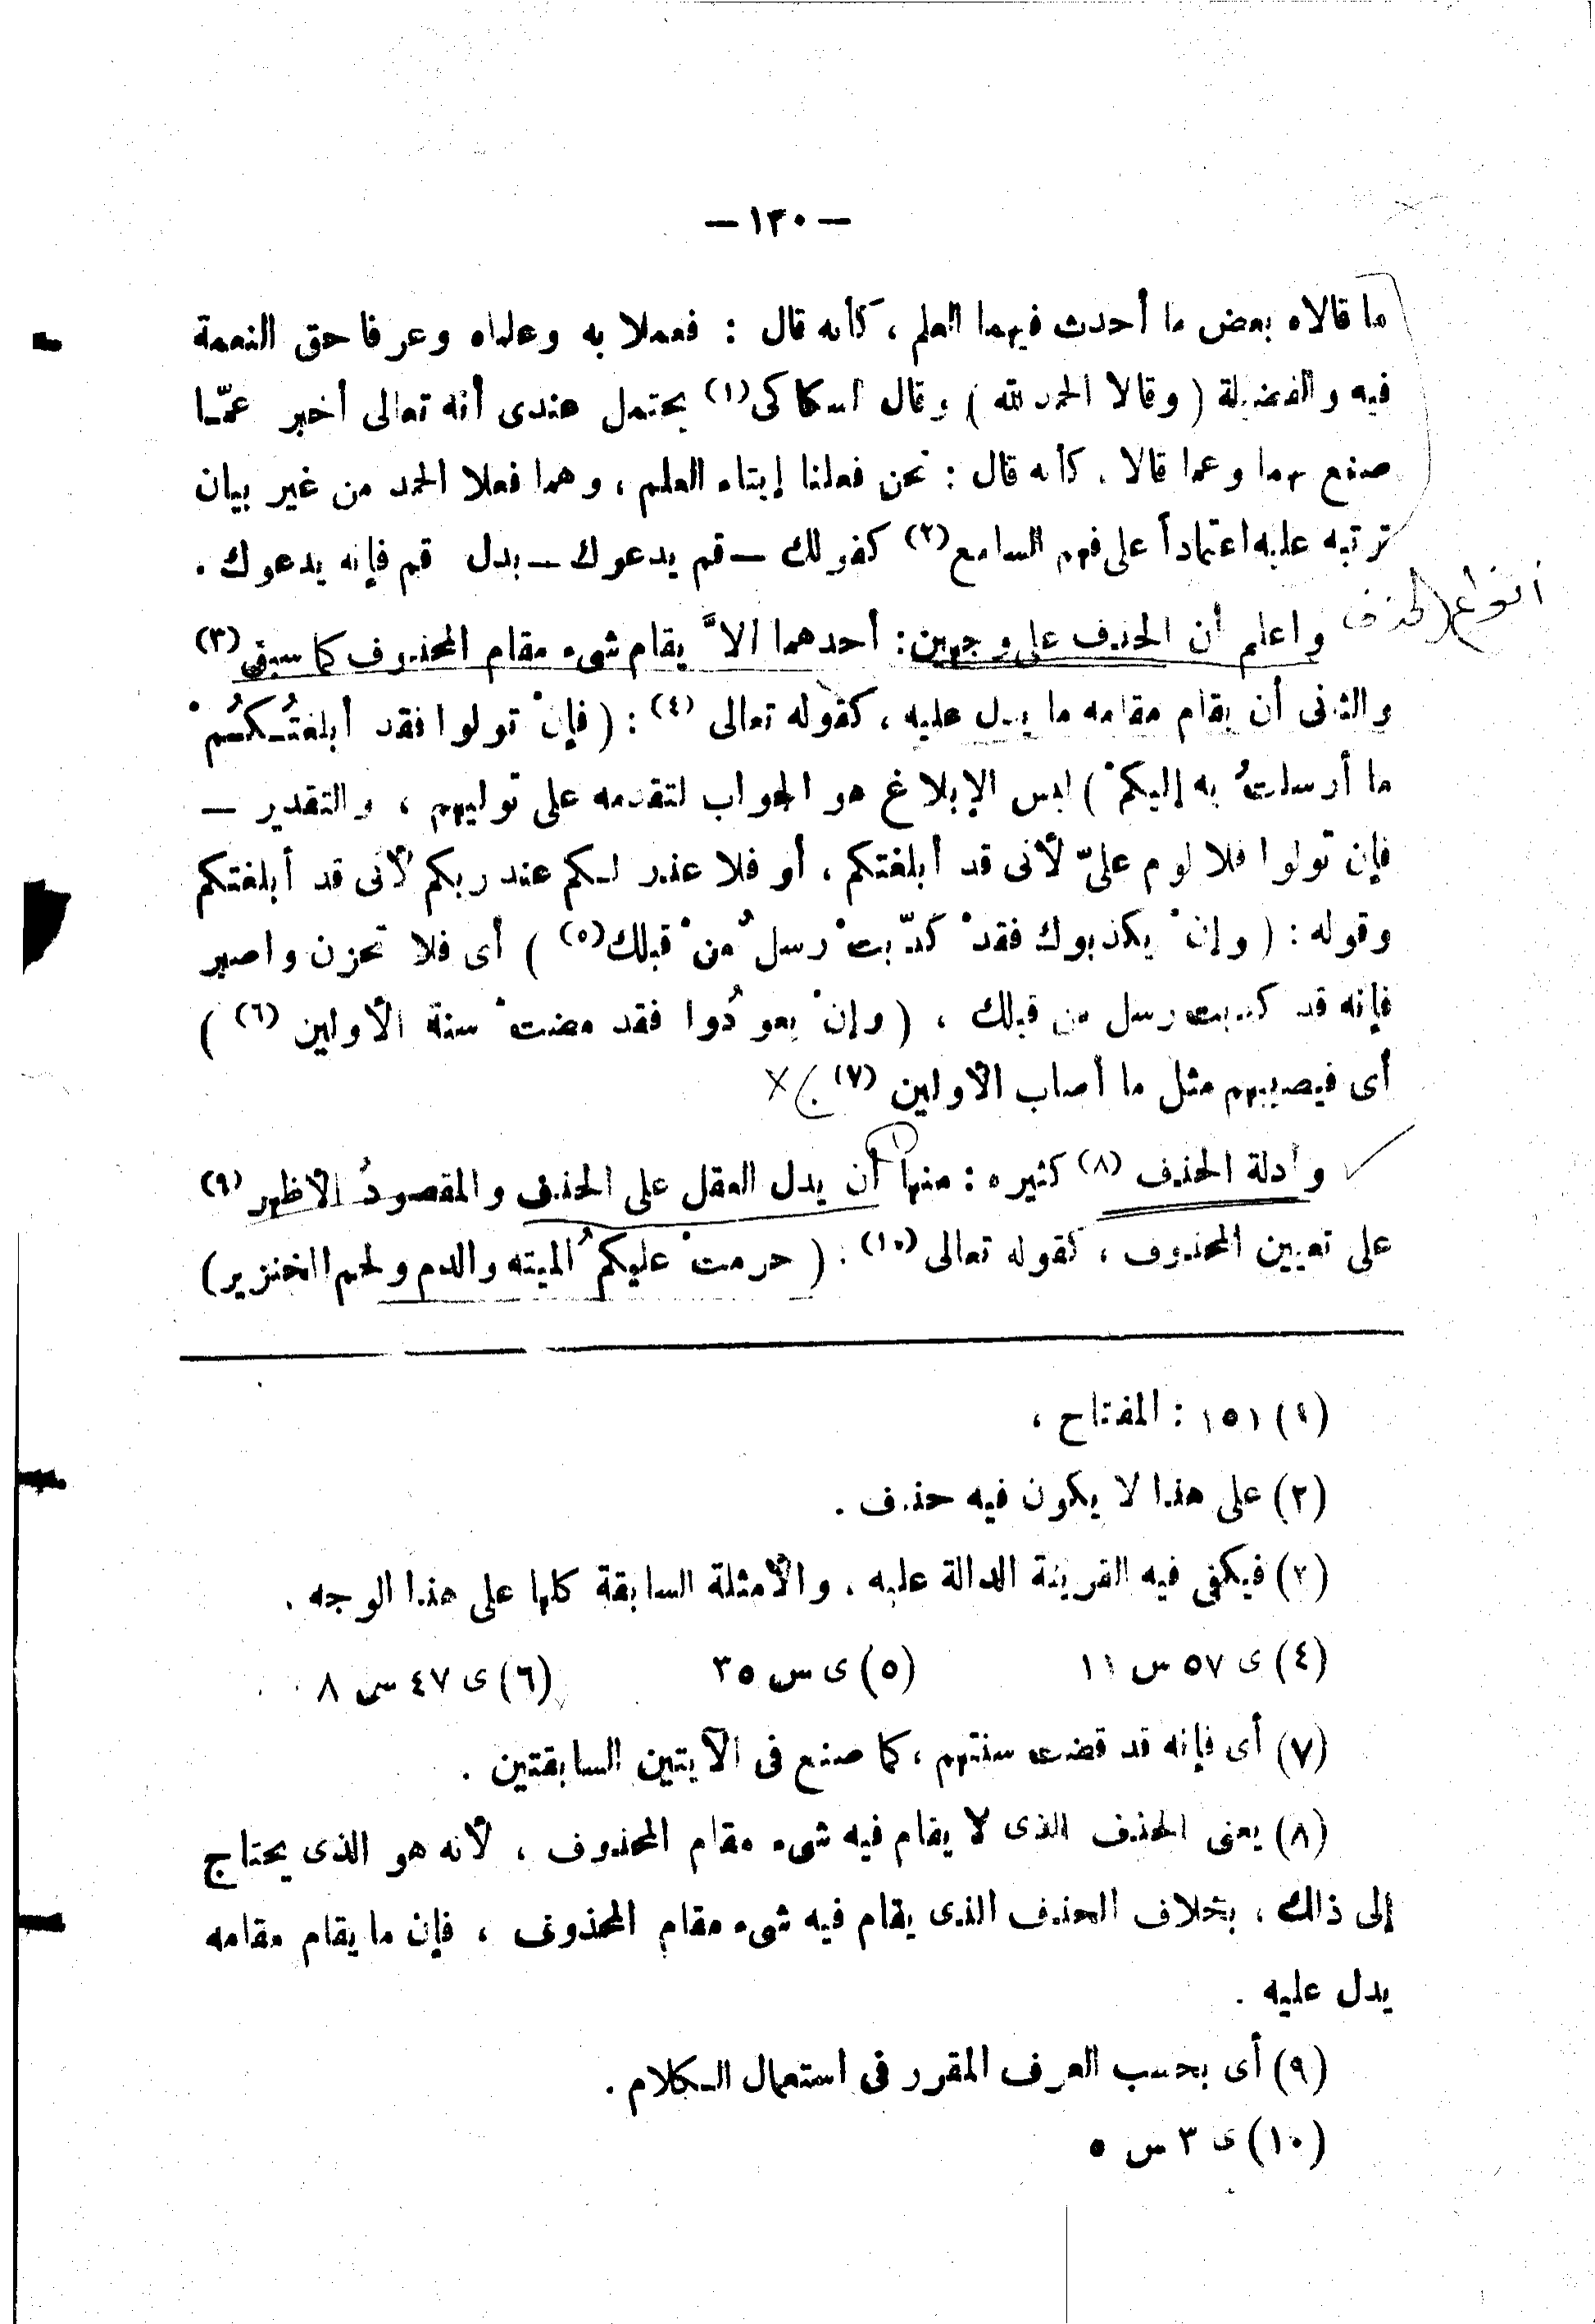 — ١٣٠ —
ما قالاه بعض ما أحدث فيهما العلم ، كأنه قال : فعملا به وعلماه وعرفا حق النعمة
فيه والفضيلة ( وقالا الحمد لله ) وقال السكاكى (١) يحتمل عندى أنه تعالى أخبر عمّا
صنع بهما وعما قالا . كأنه قال : نحن فعلنا إيتاء العلم ، وهما فعلا الحمد من غير بيان
ترتبه عليه اعتماداً على فهم السامع (٢) كقولك – قم يدعوك – بدل قم فإنه يدعوك .
أنواع الحذف
واعلم أن الحذف على وجهين : أحدهما ألاَّ يقام شىء مقام المحذوف كما سبق (٣)
والثانى أن يقام مقامه ما يدل عليه ، كقوله تعالى (٤) : ( فإنْ تولوا فقد أبلغتُكُمْ
ما أرسلتُ به إليكمْ ) ليس الإبلاغ هو الجواب لتقدمه على توليهم ، والتقدير –
فإن تولوا فلا لوم علىّ لأنى قد أبلغتكم ، أو فلا عذر لكم عند ربكم لأنى قد أبلغتكم
وقوله : ( وإنْ يكذبوك فقدْ كذّبتْ رسلٌ منْ قبلك (٥) ) أى فلا تحزن واصبر
فإنه قد كذبت رسل من قبلك ، ( وإنْ يعودُوا فقد مضتْ سنة الأولين (٦) )
أى فيصيبهم مثل ما أصاب الأولين (٧) .
وأدلة الحذف (٨) كثيره : منها أن يدل العقل على الحذف والمقصودُ الأظهر (٩)
على تعيين المحذوف ، كقوله تعالى (١٠) : ( حرمتْ عليكمُ الميته والدم ولحم الخنزير )
(١) ١٥١ : المفتاح ،
(٢) على هذا لا يكون فيه حذف .
(٣) فيكفى فيه القرينة الدالة عليه ، والأمثلة السابقة كلها على هذا الوجه .
(٤) ى ٥٧ س ١١ (٥) ى س ٣٥ (٦) ى ٤٧ س ٨
(٧) أى فإنه قد قضت سنتهم ، كما صنع فى الآيتين السابقتين .
(٨) يعنى الحذف الذى لا يقام فيه شىء مقام المحذوف ، لأنه هو الذى يحتاج
إلى ذلك ، بخلاف الحذف الذى يقام فيه شىء مقام المحذوف ، فإن ما يقام مقامه
يدل عليه .
(٩) أى بحسب العرف المقرر فى استعمال الكلام .
(١٠) ى ٣ س ٥